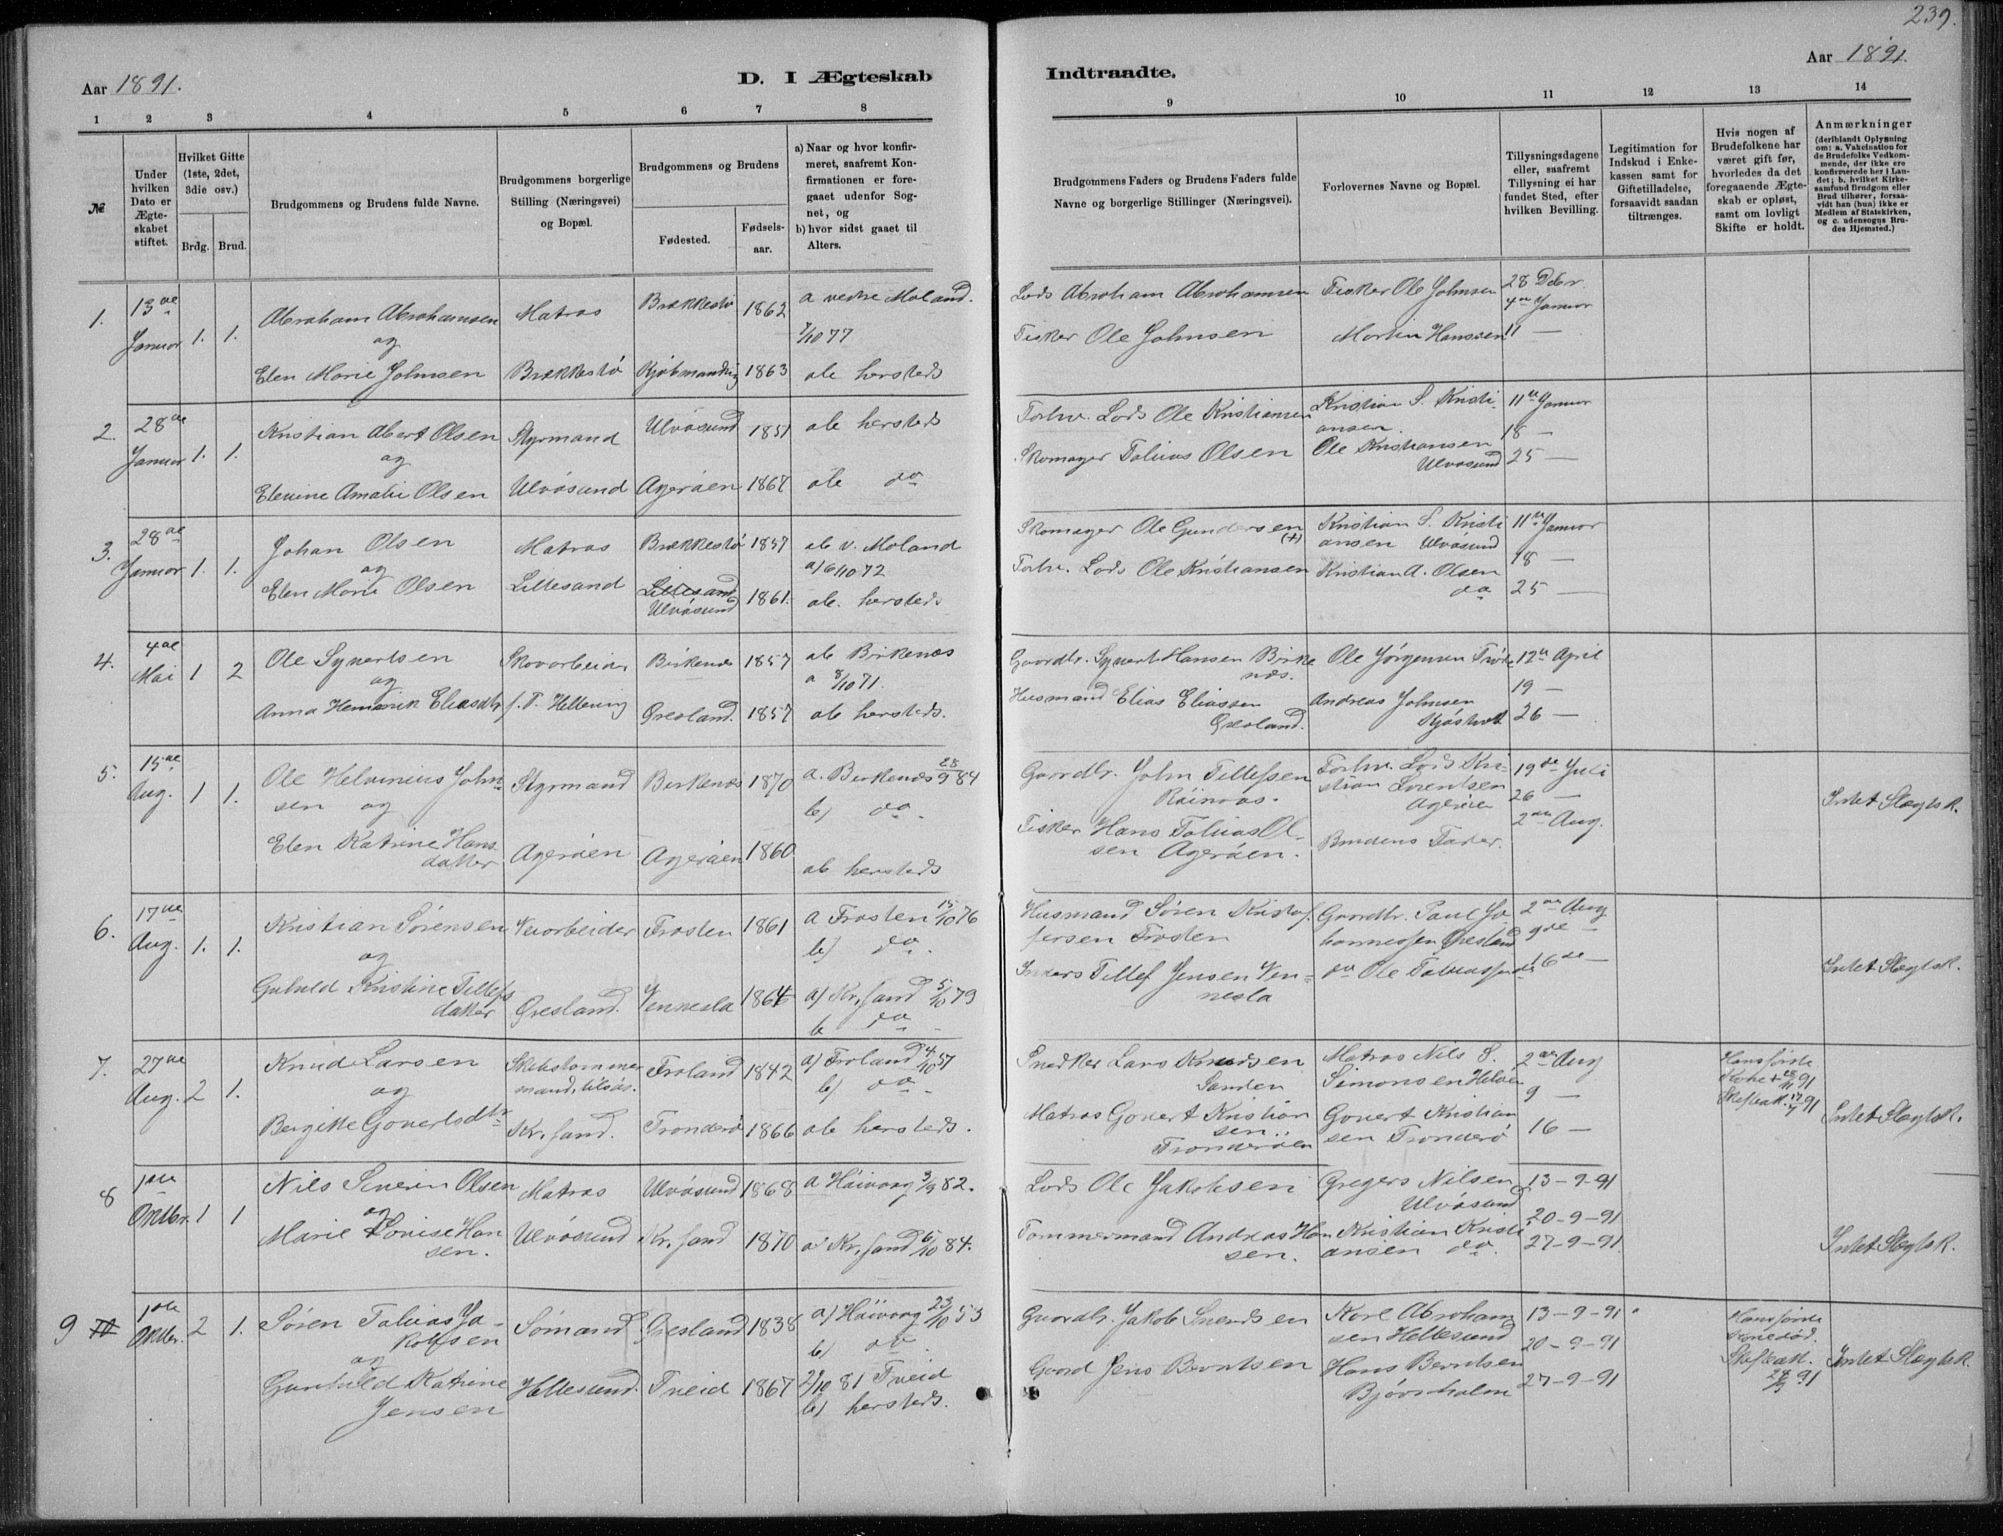 239.
Aar 1891.
D. I Ægteskab
Indtraadte.
Aar 1891.
1 2 3 4 5 6 7 8 9 10 11 12 13 14
№
Under hvilken Dato er Ægteskabet stiftet.
Hvilket Gifte (1ste, 2det, 3die osv.)
Brdg. Brud.
Brudgommens og Brudens fulde Navne.
Brudgommens borgerlige Stilling (Næringsvei) og Bopæl.
Brudgommens og Brudens
Fødested. Fødselsaar.
a) Naar og hvor konfirmeret, saafremt Konfirmationen er foregaaet udenfor Sognet, og
b) hvor sidst gaaet til Alters.
Brudgommens Faders og Brudens Faders fulde Navne og borgerlige Stillinger (Næringsvei).
Forlovernes Navne og Bopæl.
Tillysningsdagene eller, saafremt Tillysning ei har fundet Sted, efter hvilken Bevilling.
Legitimation for Indskud i Enkekassen samt for Giftetilladelse, forsaavidt saadan tiltrænges.
Hvis nogen af Brudefolkene har været gift før, hvorledes da det foregaaende Ægteskab er opløst, samt om lovligt Skifte er holdt.
Anmærkninger (deriblandt Oplysning om: a. Vakcination for de Brudefolks Vedkommende, der ikke ere konfirmerede her i Landet; b. hvilket Kirkesamfund Brudgom eller Brud tilhører, forsaavidt han (hun) ikke er Medlem af Statskirken, og c. udensogns Brudes Hjemsted.)
1. 13de Januar 1. 1. Abraham Abrahamsen Matros Brækkestø 1862 a vestre Moland. 7/10 77 Lods Abraham Abrahamsen Fisker Ole Johnsen 28 Dcbr. 4de Januar
og
Elen Marie Johnsen Brækkestø 1863 ab hersteds Fisker Ole Johnsen Martin Hanssen 11 —
2. 28de Januar 1. 1. Kristian Abert Olsen Styrmand Ulvøsund 1851 ab hersteds Forhv. Lods Ole Kristiansen Kristian S. Kristiansen. 11te Januar
og 18 —
Elevine Amalie Olsen Ulvøsund Agerøen 1867 ab do Skomager Tobias Olsen Ole Kristiansen Ulvøsund 25 —
3. 28de Januar 1. 1. Johan Olsen Matros Brækkestø 1857 ab v. Moland a) 6/10 72 Skomager Ole Gundersen (+) Kristian S. Kristiansen Ulvøsund 11te Januar
og 18 —
Elen Marie Olsen Lillesand Lillesand Ulvøsund 1861. ab. hersteds Forhv. Lods Ole Kristiansen Kristian A. Olsen do 25 —
4. 4de Mai 1 2 Ole Syvertsen Skovarbeider Birkenæs 1857 ab Birkenæs a 8/10 71. Gaardbr. Syvert Hansen Birkenæs. Ole Jørgensen 12te April
og 19 —
Anna Elíasdtr Øresland. 1857 ab hersteds. Husmand Elias Eliassen Øresland. Andreas Johnsen 26 —
5. 15de Aug. 1 1. Ole Helvinius Johnsen og Styrmand Birkenæs 1870 a. Birkenæs 28/9 84 b) do. Gaardbr. John Tellefsen Forhv. Lods Kristian Lorentsen Agerøen 19de Juli 26 —
Elen Katrine Hansdatter Agerøen Agerøen 1860 ab hersteds Fisker Hans Tobias Olsen Agerøen. Brudens Fader. 2den Aug. Intet Slægtsk.
6. 17de Aug. 1. 1. Kristian Sørensen Veiarbeider Frosten 1861 a Frosten 15/10 76 b) do. Husmand Søren Kristofersen Frosten Gaardbr. Paul Johannessen Øresland 2den Aug 9de —
og
Kristine Tellefsdatter Øresland. Vennesla 1864 a) Kr.sand 5/10 79 b do Inders Tellef Jensen Vennesla do Ole Tobiassen do 16de — Intet Slægtsk.
7. 27de Aug. 2 1. Knud Larsen Skibstømmermand, tilsøs. Froland 1842 a) Froland 4/10 57 b) do. Snedker Lars Knudsen Sanden Matros Nils S. Simonsen 2den Aug 9 — Hans første Kone + 91 Skifteatt. 91
og
Birgitte Govertsdtr Kr.sand. Trønderø 1866 ab hersteds. Matros Govert Kristiansen Trønderøen Govert Kristiansen Trønderø 16 — Intet Slægtsk.
8 1ste Oktbr. 1 1 Nils Severin Olsen Matros Ulvøsund 1868 a Høivaag 3/9 82. Lods Ole Jakobsen Gregers Nilsen Ulvøsund 13-9-91
og 20-9-91
Marie Lovise Hansen. Ulvøsund Kr.sand 1870 a) Kr.sand 5/10 84. Tømmermand Andreas Hansen. Kristian Kristiansen do. 27-9-91 Intet Slægtsk.
9 1ste Oktbr. 2 1. Søren Tobias Jakobsen Sømand Øresland 1838 a) Høivaag 23/10 53 b) do Gaardbr. Jakob Svendsen Kare Abrahamsen Hellesund 13-9-91 20-9-91 Hans første Kone død. Skifteatt. 91
og
Gunhild Katrine Jensen Hellesund. Tveid 1867 2/10 81 Tveid b) hersteds. Gaard Jens Berntsen Hans Berntsen Bjørnholm 27-9-91 Intet Slægtsk.